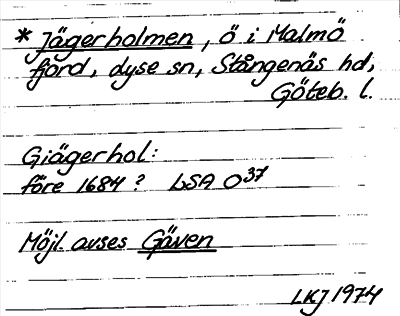 * Jägerholmen, ö i Malmö
fjord, Lyse sn, Stångenäs hd,
Göteb. l.
Giägerhol:
före 1684? LSA O37
Möjl. avses Gåven
LKJ 1974